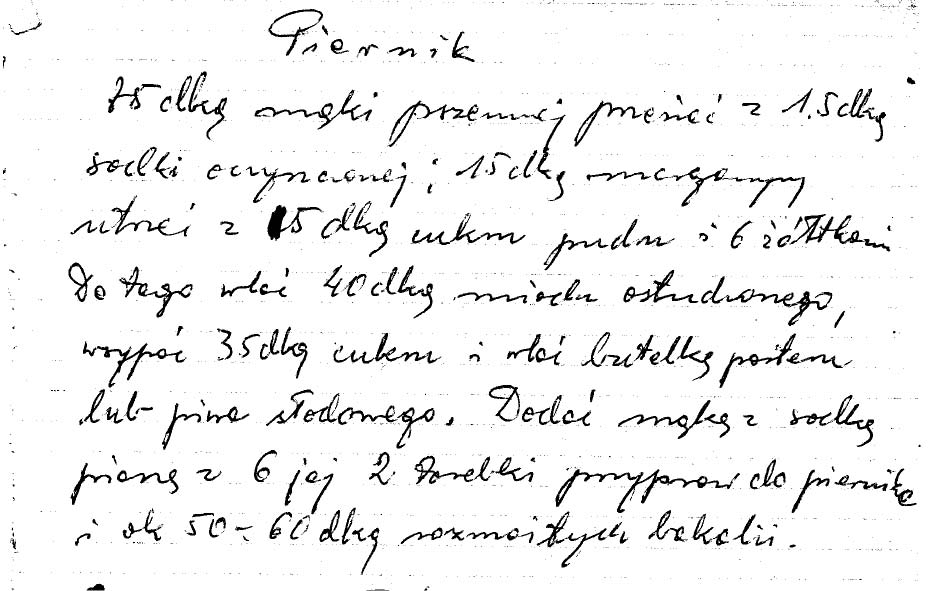 Piernik
75 dkg mąki pszennej przesiać z 1.5 dkg
sodki oczyszczonej; 15 dkg margaryny
utrzeć z 15 dkg cukru pudru i 6 żółtkami
Do tego wlać 40 dkg miodu ostudzonego,
wsypać 35 dkg cukru i wlać butelkę porteru
lub piwa słodowego. Dodać mąkę z sodką
pianę z 6 jaj 2 torebki przypraw do piernika
i ok 50-60 dkg rozmaitych bakalii.